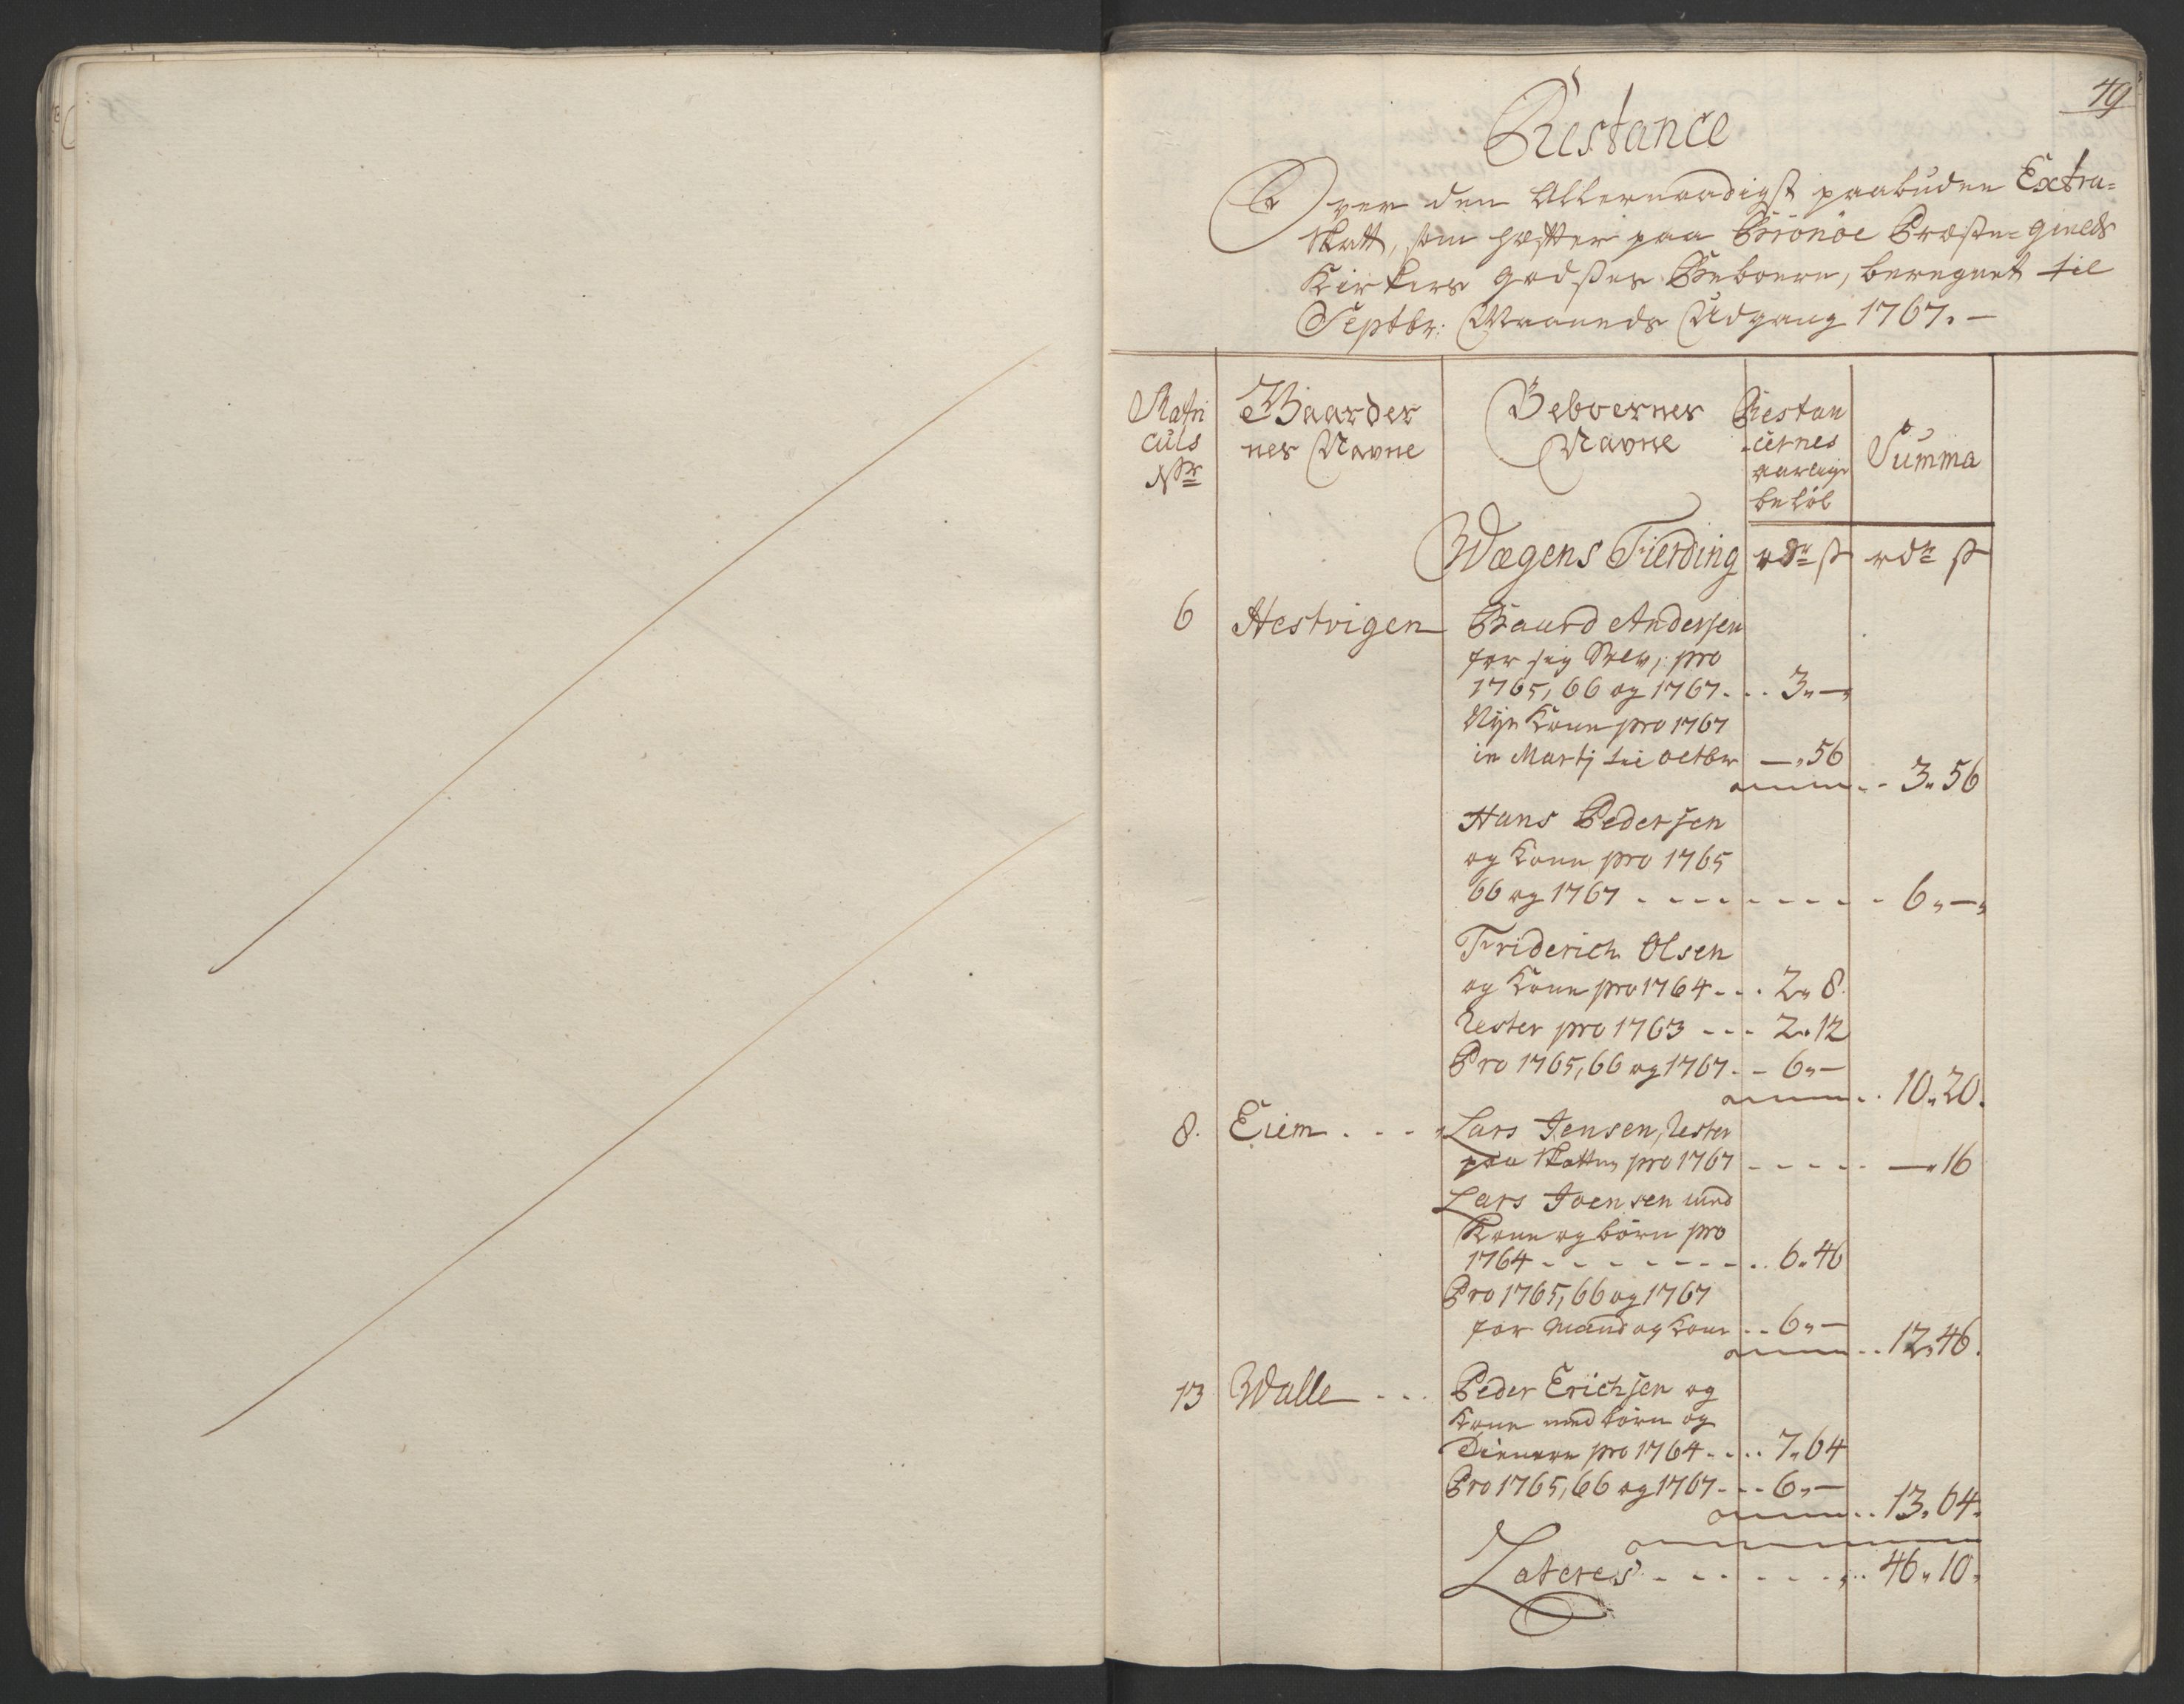 49
Restance
Over den Allernaadigst paabudne Extra-
Skatt, som hæfter paa Brönöe Præste-gields
Kirkers godses Beboere, beregnet til
Septbr: Maaneds Udgang 1767. —
Matri
culs
Nr
Gaarder
nes Navne
Beboernes
Navne
Restan
cernes
aarlige
belöb
Summa
Wægens Fierding rdr ß rdr ß
6 Hestvigen Baard Andersen
for sig Selv, pro
1765, 66 og 1767 . . . 3 „ — „
Nye Kone pro 1767
in Martj til octbr — „ 56
. . 3 „ 56
Hans Pedersen
og Kone pro 1765
66 og 1767 - - - - - - - - 6 „ — „
Friderich Olsen
og Kone pro 1764 - . . 2 „ 8.
Rester pro 1763 - - - 2 „ 12
Pro 1765, 66 og 1767 . - 6 „ —
. . 10 „ 20.
8. Eiem . - - - Lars Jensen, Rester
paa Skatten pro 1767 - - - - - — „ 16
Lars Joensen med
Kone og börn pro
1764 - - - - - - - . . 6 „ 46
Pro 1765, 66 og 1767
for Mand og Kone . . 6 „ —
. . 12 „ 46.
13 Walle - . . Peder Erichsen og
Kone med börn og
Tienere pro 1764 - . . . 7 „ 64
Pro 1765, 66 og 1767 - . - 6 „ —
. . 13 „ 64.
Lateres - - - - - - . . 46 „ 10 „